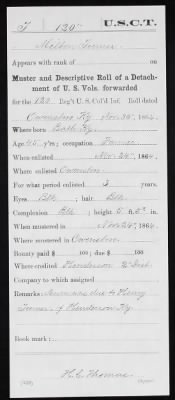 T 120 U.S.C.T.
Milton Turner
Appears with rank of
Muster and Descriptive Roll of a Detach-
ment of U. S. Vols. forwarded
for the 120 Reg't U. S. Col'd Inf. Roll dated
Owensboro Ky, Nov 30, 1864.
Where born Bath Ky.
Age 45 y'rs; occupation Farmer
When enlisted Nov 24, 1864.
Where enlisted Owensboro
For what period enlisted 3 years.
Eyes Blk; hair Blk.
Complexion Blk; height 5 ft. 8 in.
When mustered in Nov 24, 1864.
Where mustered in Owensboro
Bounty paid $ 100; due $ 100
Where credited Henderson 2" Dist
Company to which assigned
Remarks: Service due to Henry
Turner of Henderson Ky
Book mark: